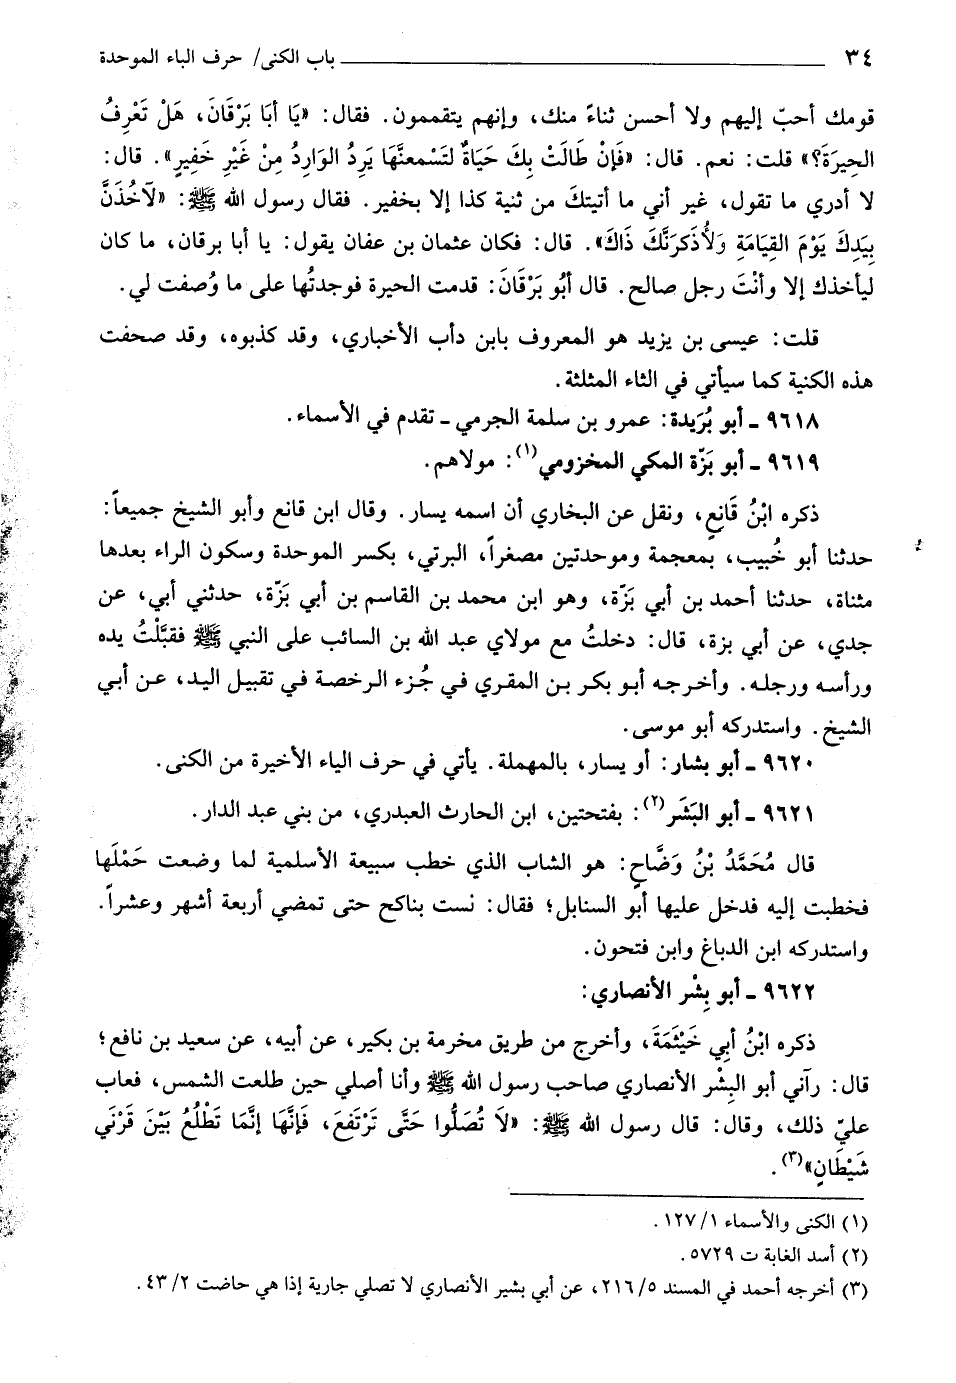 ٣٤ باب الكنى/ حرف الباء الموحدة
قومك أحبّ إليهم ولا أحسن ثناءً منك، وإنهم يتقممون. فقال: «يَا أبَا بَرْقَانَ، هَلْ تَعْرِفُ
الحِيرَةَ؟» قلت: نعم. قال: «فَإنْ طَالَتْ بِكَ حَيَاةٌ لتَسْمعنَّها يَرِدُ الوَارِدُ مِنْ غَيْرِ خَفِيرٍ». قال:
لا أدري ما تقول، غير أني ما أتيتكَ من ثنية كذا إلا بخفير. فقال رسول الله ﷺ: «لآخُذَنَّ
بِيَدِكَ يَوْمَ القِيَامَةِ وَلأُذَكرَنَّكَ ذَاكَ». قال: فكان عثمان بن عفان يقول: يا أبا برقان، ما كان
ليأخذك إلا وأنْتَ رجل صالح. قال أبُو بَرْقَانَ: قدمت الحيرة فوجدتُها على ما وُصفت لي.
قلت: عيسى بن يزيد هو المعروف بابن دأب الأخباري، وقد كذبوه، وقد صحفت
هذه الكنية كما سيأتي في الثاء المثلثة.
٩٦١٨ ـ أبو بُرَيدة: عمرو بن سلمة الجرمي ـ تقدم في الأسماء.
٩٦١٩ ـ أبو بَزّة المكي المخزومي(١): مولاهم.
ذكره ابْنُ قَانِعٍ، ونقل عن البخاري أن اسمه يسار. وقال ابن قانع وأبو الشيخ جميعاً:
حدثنا أبو خُبيب، بمعجمة وموحدتين مصغراً، البرتي، بكسر الموحدة وسكون الراء بعدها
مثناة، حدثنا أحمد بن أبي بَزّة، وهو ابن محمد بن القاسم بن أبي بَزّة، حدثني أبي، عن
جدي، عن أبي بزة، قال: دخلتُ مع مولاي عبد الله بن السائب على النبي ﷺ فقبَّلْتُ يده
ورأسه ورجله. وأخرجه أبو بكر بن المقري في جُزء الرخصة في تقبيل اليد، عن أبي
الشيخ. واستدركه أبو موسى.
٩٦٢٠ ـ أبو بشار: أو يسار، بالمهملة. يأتي في حرف الياء الأخيرة من الكنى.
٩٦٢١ ـ أبو البَشَر(٢): بفتحتين، ابن الحارث العبدري، من بني عبد الدار.
قال مُحَمَّدُ بْنُ وَضَّاحٍ: هو الشاب الذي خطب سبيعة الأسلمية لما وضعت حَمْلَها
فخطبت إليه فدخل عليها أبو السنابل؛ فقال: نست بناكح حتى تمضي أربعة أشهر وعشراً.
واستدركه ابن الدباغ وابن فتحون.
٩٦٢٢ ـ أبو بِشْر الأنصاري:
ذكره ابْنُ أبِي خَيْثَمَةَ، وأخرج من طريق مخرمة بن بكير، عن أبيه، عن سعيد بن نافع؛
قال: رآني أبو البِشْر الأنصاري صاحب رسول الله ﷺ وأنا أصلي حين طلعت الشمس، فعاب
عليّ ذلك، وقال: قال رسول الله ﷺ: «لاَ تُصَلُّوا حَتَّى تَرْتَفعَ، فَإنَّهَا إنَّمَا تَطْلُعُ بَيْنَ قَرْنَي
شَيْطَانٍ»(٣).
(١) الكنى والأسماء ١/ ١٢٧.
(٢) أسد الغابة ت ٥٧٢٩.
(٣) أخرجه أحمد في المسند ٥/ ٢١٦، عن أبي بشير الأنصاري لا تصلي جارية إذا هي حاضت ٢/ ٤٣.